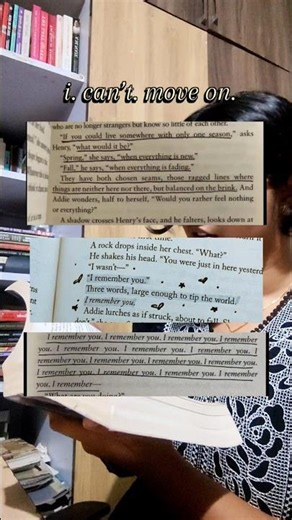 i. can't. move on.
who are no longer strangers but know so little of each other.
"If you could live somewhere with only one season," asks
Henry, "what would it be?"
"Spring," she says, "when everything is new."
"Fall," he says, "when everything is fading."
They have both chosen seams, those ragged lines where
things are neither here nor there, but balanced on the brink. And
Addie wonders, half to herself, "Would you rather feel nothing
or everything?"
A shadow crosses Henry's face, and he falters, looks down at
A rock drops inside her chest. "What?"
He shakes his head. "You were just in here yesterd
"I wasn't—"
"I remember you."
Three words, large enough to tip the world.
I remember you.
Addie lurches as if struck, about to
I remember you. I remember you. I remember you. I remember
you. I remember you. I remember you. I remember you. I
remember you. I remember you. I remember you. I remember
you. I remember you. I remember you. I remember you. I remember
you. I remember—